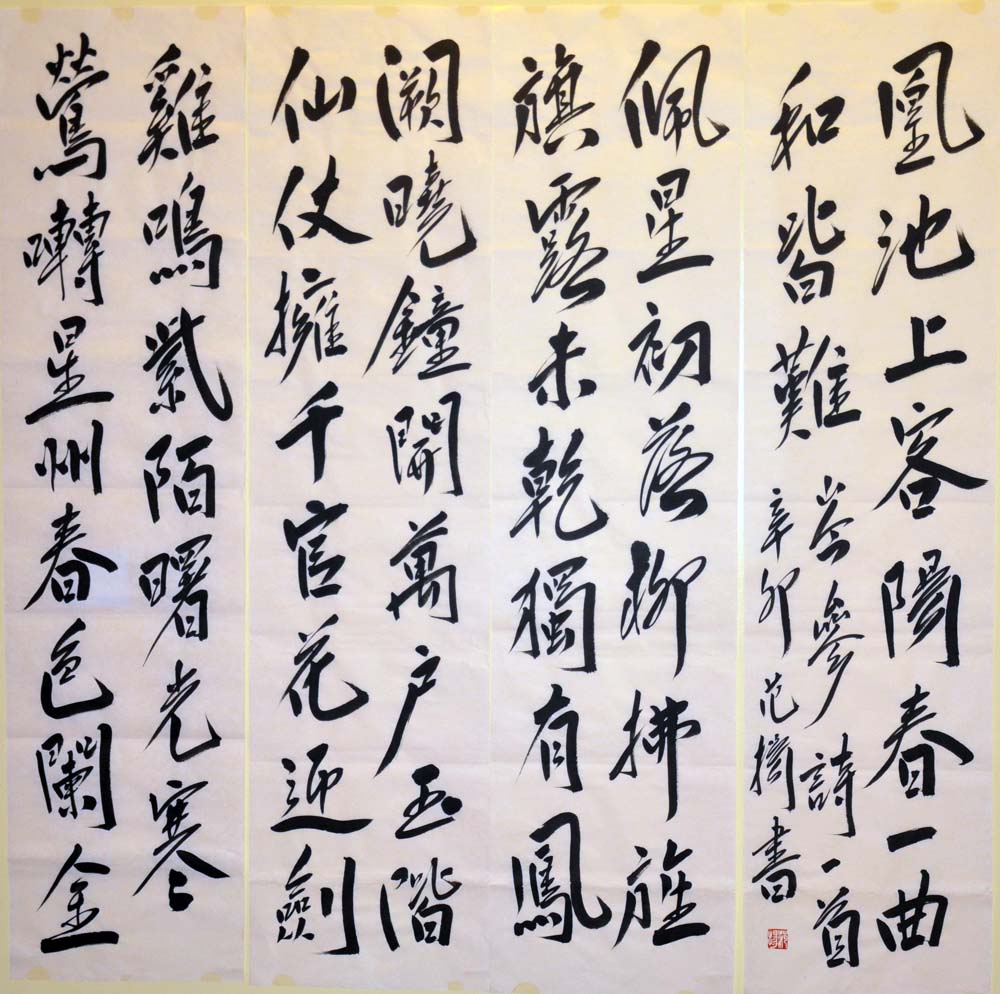 雞鳴紫陌曙光寒
鶯囀皇州春色闌金
闕曉鐘開萬户玉階
仙仗擁千官花迎劍
佩星初落柳拂旌
旗露未乾獨有鳳
凰池上客陽春一曲
和皆難
岑參詩一首
辛卯范書